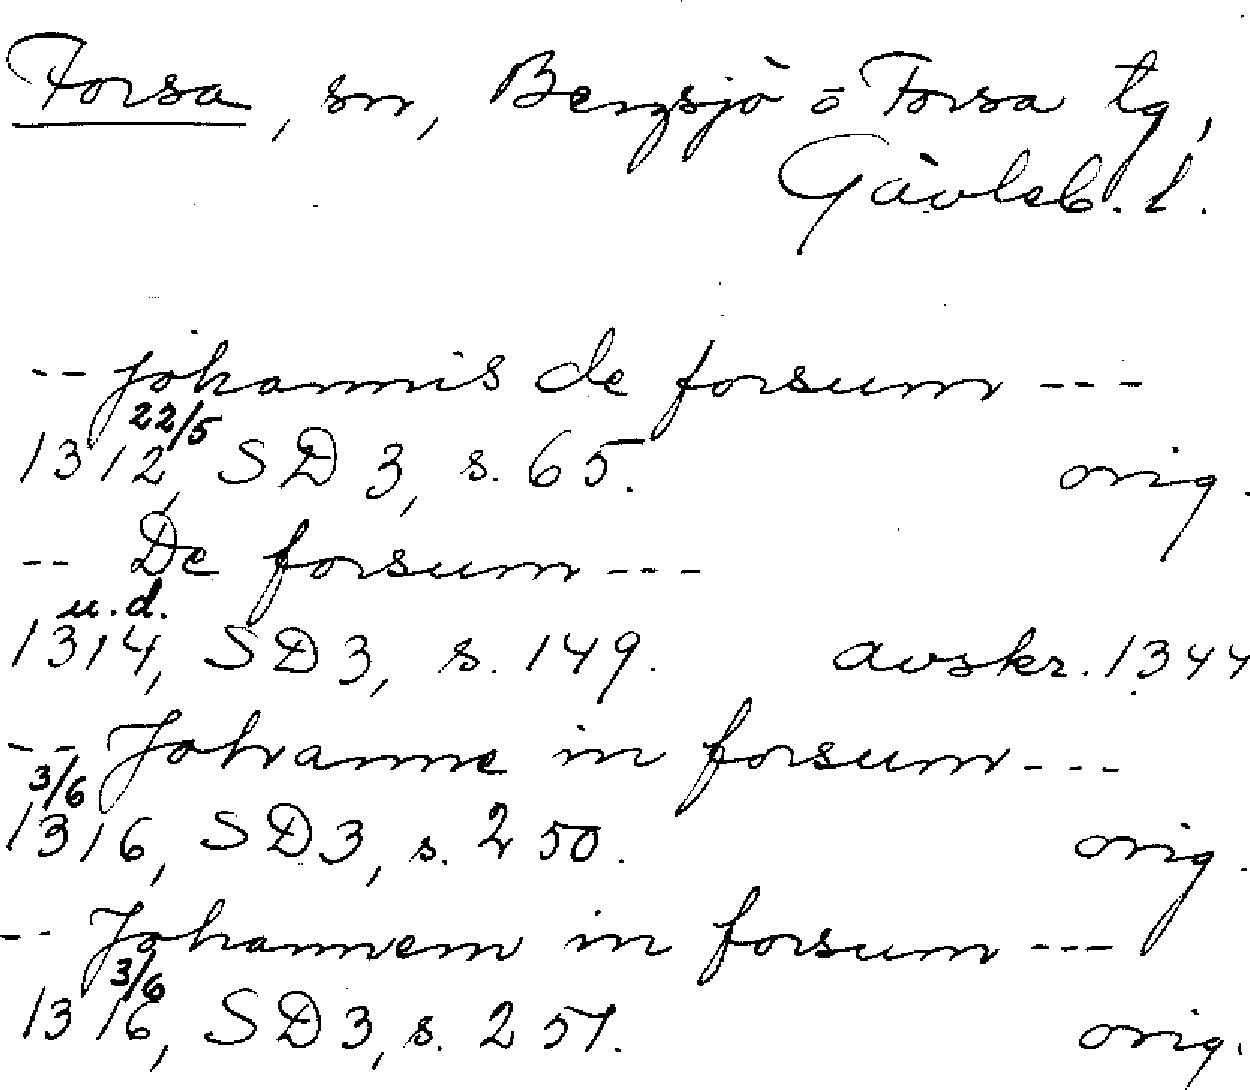 Forsa, sn, Bergsjö o Forsa tg,
Gävleb. l.
-- johannis de forsum ---
22/5
1312, SD 3, s. 65. orig.
-- De forsum ---
u.d.
1314, SD 3, s. 149. avskr. 1344
-- Johanne in forsum ---
3/6
1316, SD 3, s. 250. orig.
-- Johannem in forsum ---
3/6
1316, SD 3, s. 251. orig.